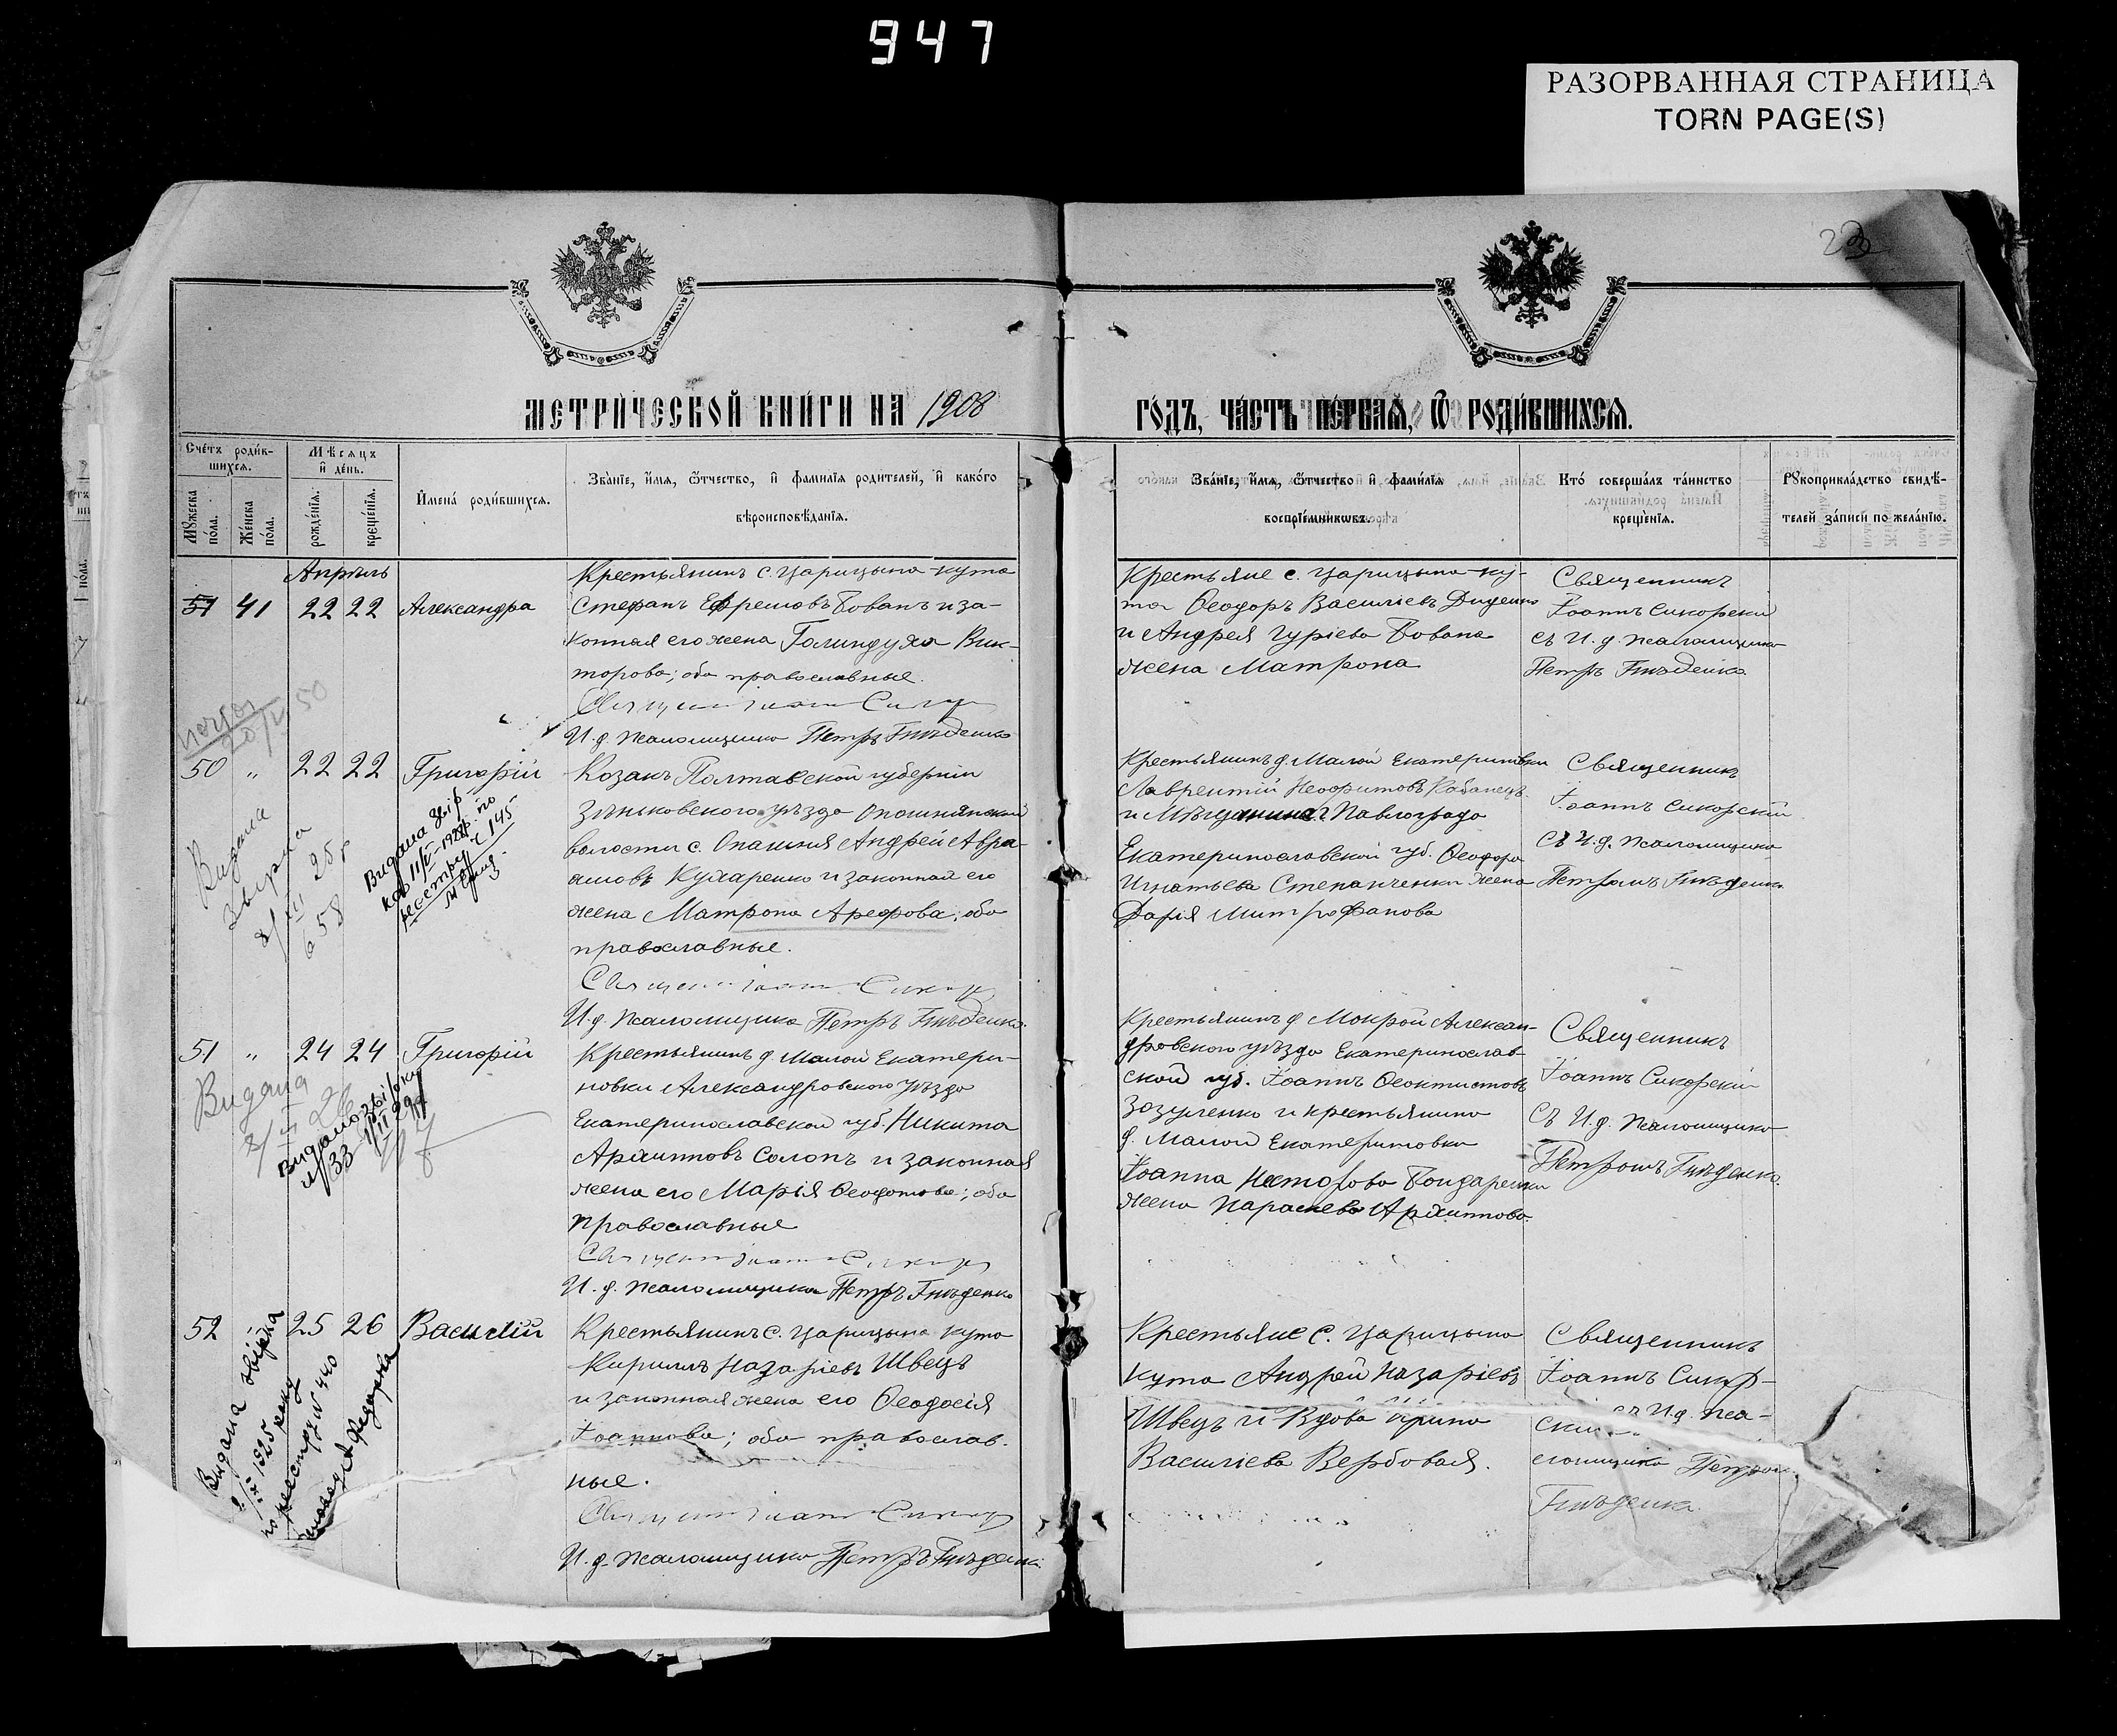 947
РАЗОРВАННАЯ СТРАНИЦА
TORN PAGE(S)
МЕТРИЧЕСКОЙ КНИГИ НА 1908
ГОДЪ, ЧАСТЬ ПЕРВАЯ, Ѿ РОДИВШИХСЯ.
Счетъ родив-
шихся.
Мѣсяцъ
и день.
Мужеска
пола.
Женска
пола.
рожденія.
крещенія.
Имена родившихся.
Званіе, имя, ѿтчество, и фамилія родителей, и какого
вѣроисповѣданія.
Званіе, имя, ѿтчество и фамилія
воспріемниковъ.
Кто совершалъ таинство
крещенія.
Рукоприкладство свидѣ-
телей записи по желанію.
Апрѣль
51 41 22 22 Александра
Крестьянинъ с. Царицына-Кута
Стефанъ Ефремовъ Бованъ и за-
конная его жена Голиндуха Вик-
торова; оба православные.
И. д. псаломщика Петръ Гнѣденко
Крестьяне с. Царицына-Ку-
та Ѳеодоръ Василіевъ Диденко
и Андрея Гуріева Бована
жена Матрона
Священникъ
Іоаннъ Сикорскій
съ И. д. псаломщика
Петръ Гнѣденко
50 " 22 22 Григорій
Козакъ Полтавской губерніи
Зѣньковского уѣзда Опошнянской
волости с. Опашня Андрей Авра-
амовъ Кухаренко и законная его
жена Матрона Ареѳова; оба
православные.
И. д. псаломщика Петръ Гнѣденко
Крестьянинъ д. Малой Екатериновки
Лаврентій Неофитовъ Кабанецъ
и Мѣщанина г. Павлограда
Екатеринославской губ. Ѳеодора
Игнатьева Степанченки жена
Дарія Митрофанова
Священникъ
Іоаннъ Сикорскій
Съ И. д. псаломщика
Петромъ Гнѣденко
Видана
658
51 " 24 24 Григорій
Крестьянинъ д. Малой Екатери-
новки Александровского уѣзда
Екатеринославской губ. Никита
Архиповъ Солопъ и законная
жена его Марія Ѳеодотова; оба
православные
И. д. псаломщика Петръ Гнѣденко
Крестьянинъ д. Мокрой Алексан-
дровского уѣзда Екатеринослав-
ской губ. Іоаннъ Ѳеоктистовъ
Зозуленко и крестьянина
д. Малой Екатериновки
Іоанна Несторова Бондаренки
жена Параскева Архиппова
Священникъ
Іоаннъ Сикорскій
Съ И. д. псаломщика
Петромъ Гнѣденко
Видана
52 25 26 Василій
Крестьянинъ с. Царицына Кута
Кириллъ Назаріевъ Швецъ
и законная жена его Ѳеодосія
Іоаннова; оба православ.
ные.
И. д. псаломщика Петръ Гнѣденко
Крестьяне с. Царицына
Кута Андрей Назаріевъ
Швецъ и Вдова Ирина
Василіева Вербовая.
Священникъ
Іоаннъ Сикор-
скій съ И. д. пса-
ломщика Петром
Гнѣденко
Видана